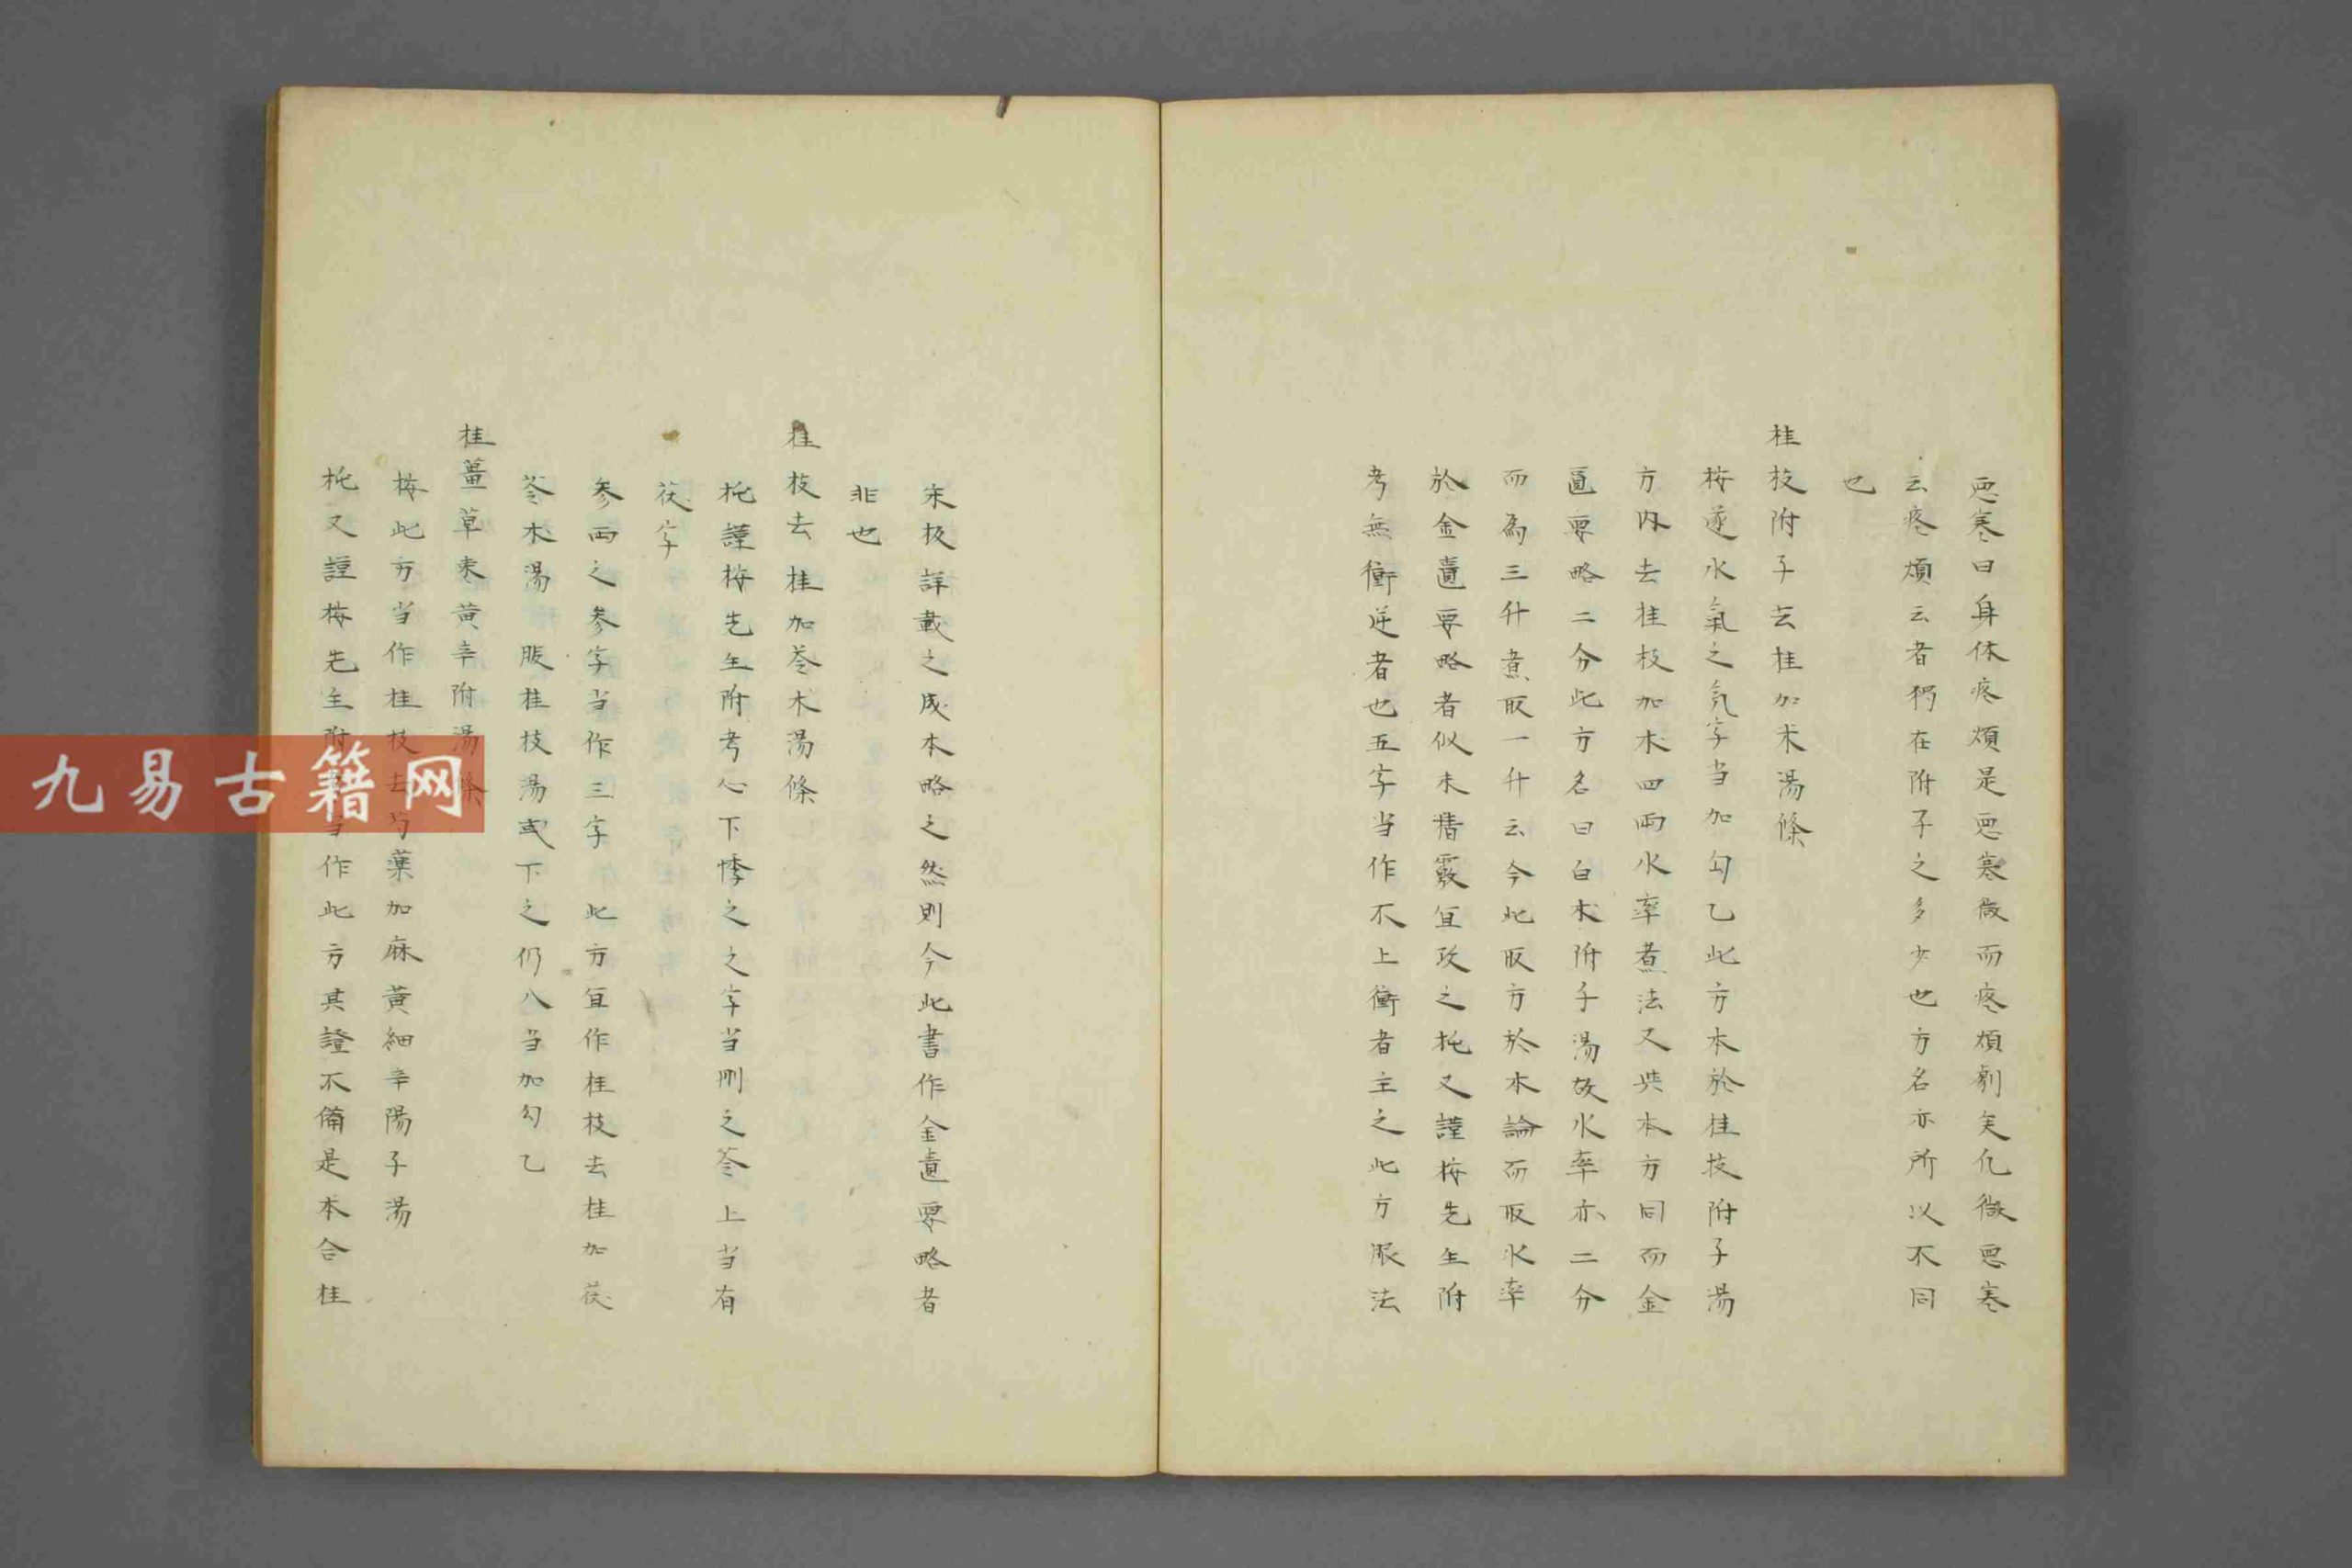 悪寒曰身体疼煩是悪寒微而疼煩劇矣仡微悪寒
云疼煩云者猶在附子之多少也方名亦所以不同
也
桂枝附子去桂加朮湯條
按逐水氣之気字当加勾乙此方本於桂枝附子湯
方内去桂枝加朮四兩水率煮法又与本方同而金
匱要略二分此方名曰白朮附子湯故水率亦二分
而為三升煮取一升云今此取方於本論而取水率
於金匱要略者似未精覈宜改之又謹按先生附
考無衝逆者也五字当作不上衝者主之此方服法
宋板詳載之成本略之然則今此書作金匱要略者
非也
桂枝去桂加苓朮湯條
謹按先生附考心下悸之之字当刪之苓上当有
茯字
参両之参字当作三字 此方宜作桂枝去桂加茯
苓朮湯 服桂枝湯或下之仍八当加勾乙
桂薑草棗黄辛附湯條
按此方当作桂枝去芍薬加麻黄細辛附子湯
又謹按先生附考当作此方其證不備是本合桂
九易古籍网